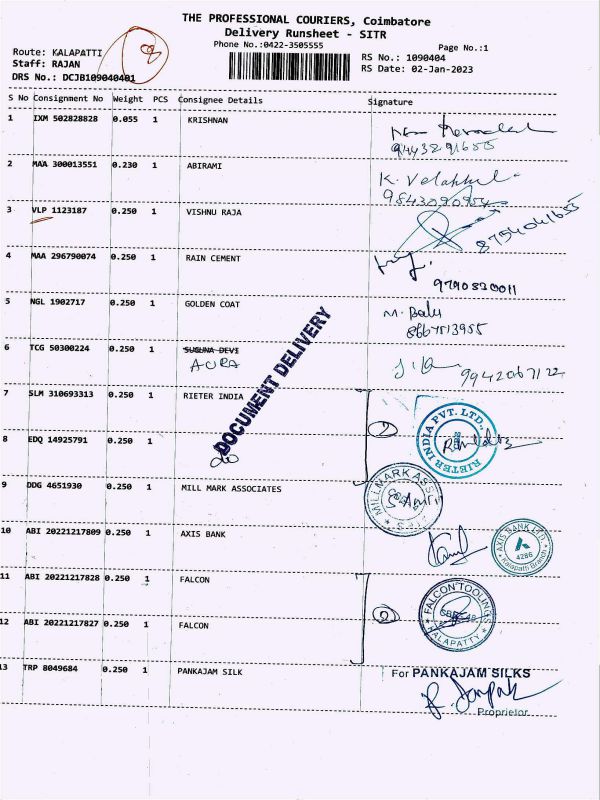 THE PROFESSIONAL COURIERS, Coimbatore
Delivery Runsheet - SITR
Phone No.:0422-3505555
Page No.:1
Route: KALAPATTI
Staff: RAJAN
DRS No.: DCJB109040401
RS No.: 1090404
RS Date: 02-Jan-2023
S No Consignment No Weight PCS Consignee Details Signature
1 IXM 502828828 0.055 1 KRISHNAN
9443291655
2 MAA 300013551 0.230 1 ABIRAMI
9843090954
3 VLP 1123187 0.250 1 VISHNU RAJA
8754041655
4 MAA 296790074 0.250 1 RAIN CEMENT
9790820011
5 NGL 1902717 0.250 1 GOLDEN COAT
M. Balu
8667513955
6 TCG 50300224 0.250 1 SUGUNA DEVI
AURA
9942067122
DOCUMENT DELIVERY
7 SLM 310693313 0.250 1 RIETER INDIA
2
RIETER INDIA PVT. LTD.,
8 EDQ 14925791 0.250 1
do
9 DDG 4651930 0.250 1 MILL MARK ASSOCIATES
MILLMARK ASSOCIATES
10 ABI 20221217809 0.250 1 AXIS BANK
AXIS BANK LTD.
4286
Kalapatti Branch
11 ABI 20221217828 0.250 1 FALCON
2
FALCON TOOLINGS
KALAPATTY
12 ABI 20221217827 0.250 1 FALCON
13 TRP 8049684 0.250 1 PANKAJAM SILK
For PANKAJAM SILKS
Proprietor